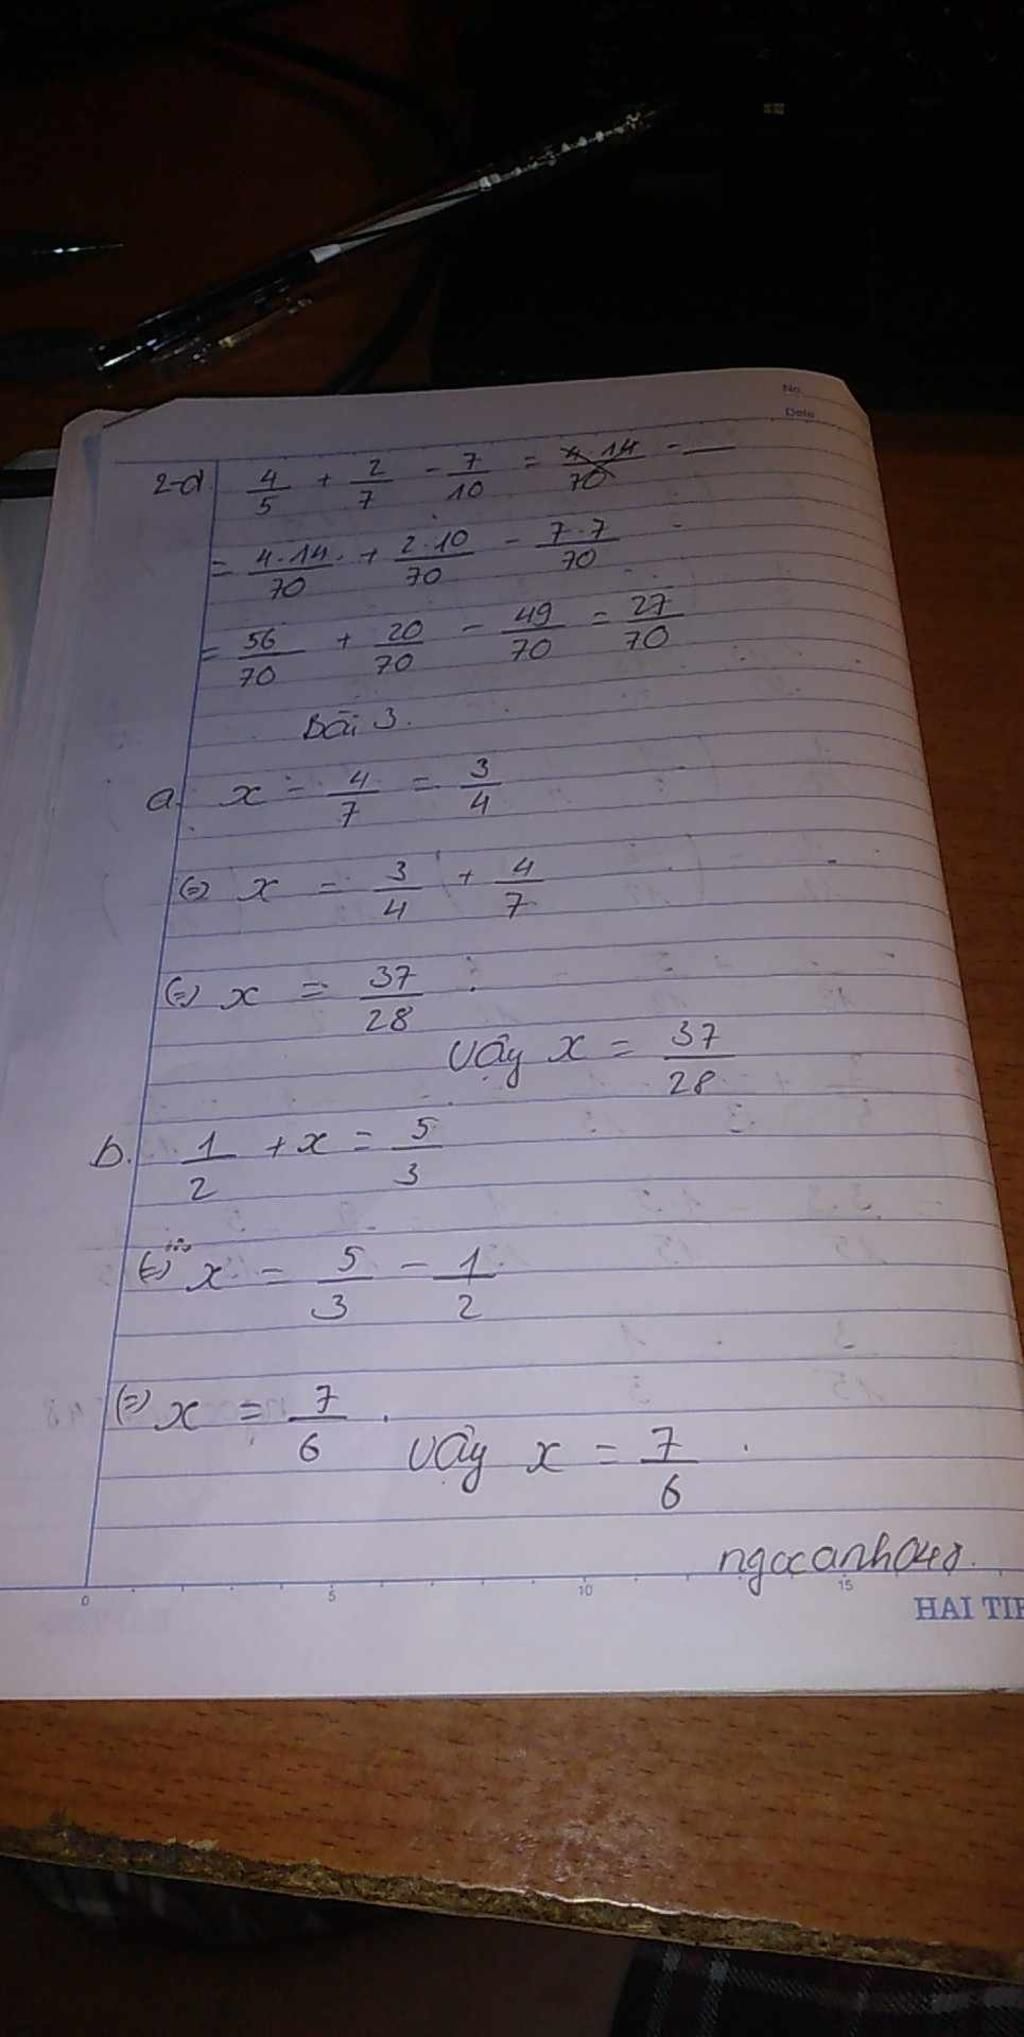 No.
Date
2-d 4/5 + 2/7 - 7/10 = 4.14/70 - —
= 4.14/70 + 2.10/70 - 7.7/70
= 56/70 + 20/70 - 49/70 = 27/70
Bài 3.
a. x - 4/7 = 3/4
(=) x = 3/4 + 4/7
(=) x = 37/28 .
Vậy x = 37/28
b. 1/2 + x = 5/3
(=) x = 5/3 - 1/2
(=) x = 7/6 .
Vậy x = 7/6 .
0 5 10 15
HAI TIE